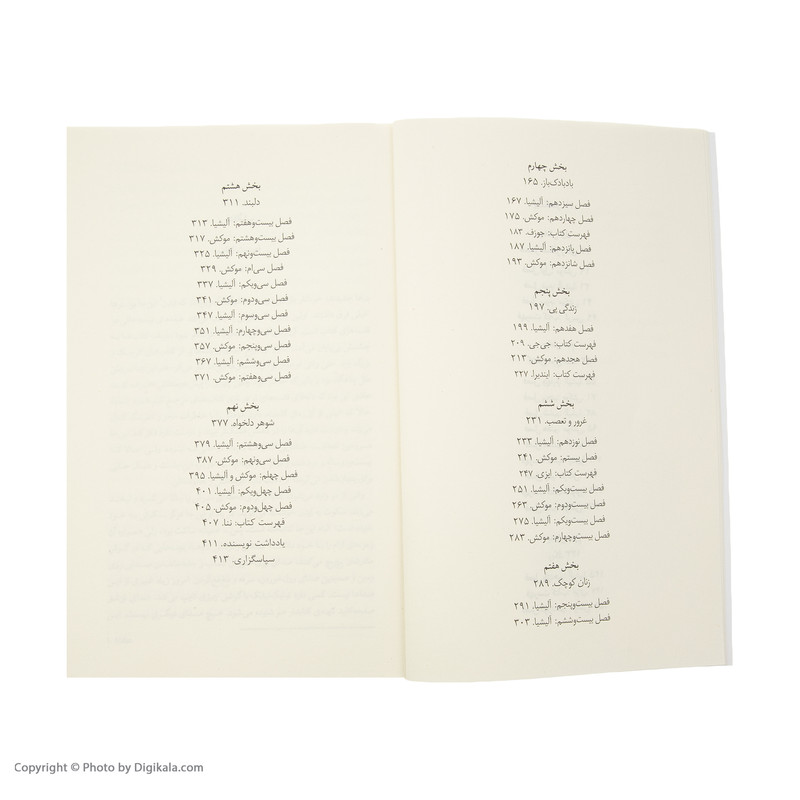 بخش چهارم
بادبادک‌باز. ۱۶۵
فصل سیزدهم: آلیشیا. ۱۶۷
فصل چهاردهم: موکش. ۱۷۵
فهرست کتاب: جوزف. ۱۸۳
فصل پانزدهم: آلیشیا. ۱۸۷
فصل شانزدهم: موکش. ۱۹۳
بخش پنجم
زندگی پی. ۱۹۷
فصل هفدهم: آلیشیا. ۱۹۹
فهرست کتاب: جی‌جی. ۲۰۹
فصل هجدهم: موکش. ۲۱۳
فهرست کتاب: ایندیرا. ۲۲۷
بخش ششم
غرور و تعصب. ۲۳۱
فصل نوزدهم: آلیشیا. ۲۳۳
فصل بیستم: موکش. ۲۴۱
فهرست کتاب: ایزی. ۲۴۷
فصل بیست‌ویکم: آلیشیا. ۲۵۱
فصل بیست‌ودوم: موکش. ۲۶۳
فصل بیست‌ویکم: آلیشیا. ۲۷۵
فصل بیست‌وچهارم: موکش. ۲۸۳
بخش هفتم
زنان کوچک. ۲۸۹
فصل بیست‌وپنجم: آلیشیا. ۲۹۱
فصل بیست‌وششم: آلیشیا. ۳۰۳
بخش هشتم
دلبند. ۳۱۱
فصل بیست‌وهفتم: آلیشیا. ۳۱۳
فصل بیست‌وهشتم: موکش. ۳۱۷
فصل بیست‌ونهم: آلیشیا. ۳۲۵
فصل سی‌ام: موکش. ۳۲۹
فصل سی‌ویکم: آلیشیا. ۳۳۷
فصل سی‌ودوم: موکش. ۳۴۱
فصل سی‌وسوم: آلیشیا. ۳۴۷
فصل سی‌وچهارم: آلیشیا. ۳۵۱
فصل سی‌وپنجم: موکش. ۳۵۷
فصل سی‌وششم: آلیشیا. ۳۶۷
فصل سی‌وهفتم: موکش. ۳۷۱
بخش نهم
شوهر دلخواه. ۳۷۷
فصل سی‌وهشتم: آلیشیا. ۳۷۹
فصل سی‌ونهم: موکش. ۳۸۷
فصل چهلم: موکش و آلیشیا. ۳۹۵
فصل چهل‌ویکم: آلیشیا. ۴۰۱
فصل چهل‌ودوم: موکش. ۴۰۵
فهرست کتاب: ننا. ۴۰۷
یادداشت نویسنده. ۴۱۱
سپاسگزاری. ۴۱۳
Copyright © Photo by Digikala.com